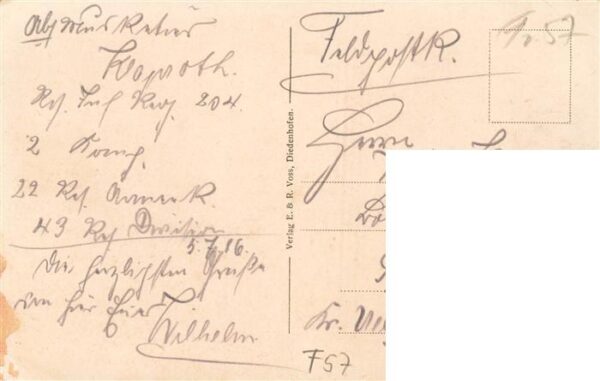 Abs Musketier
Res. Inf. Reg. 204.
2 Komp.
22 Res. Armee K.
43 Res Division
5.7.16.
Die herzlichsten Grüße
von hier Euer
Wilhelm
Verlag E. & R. Voss, Diedenhofen.
Feldpostk.
Herrn
Kr.
F57